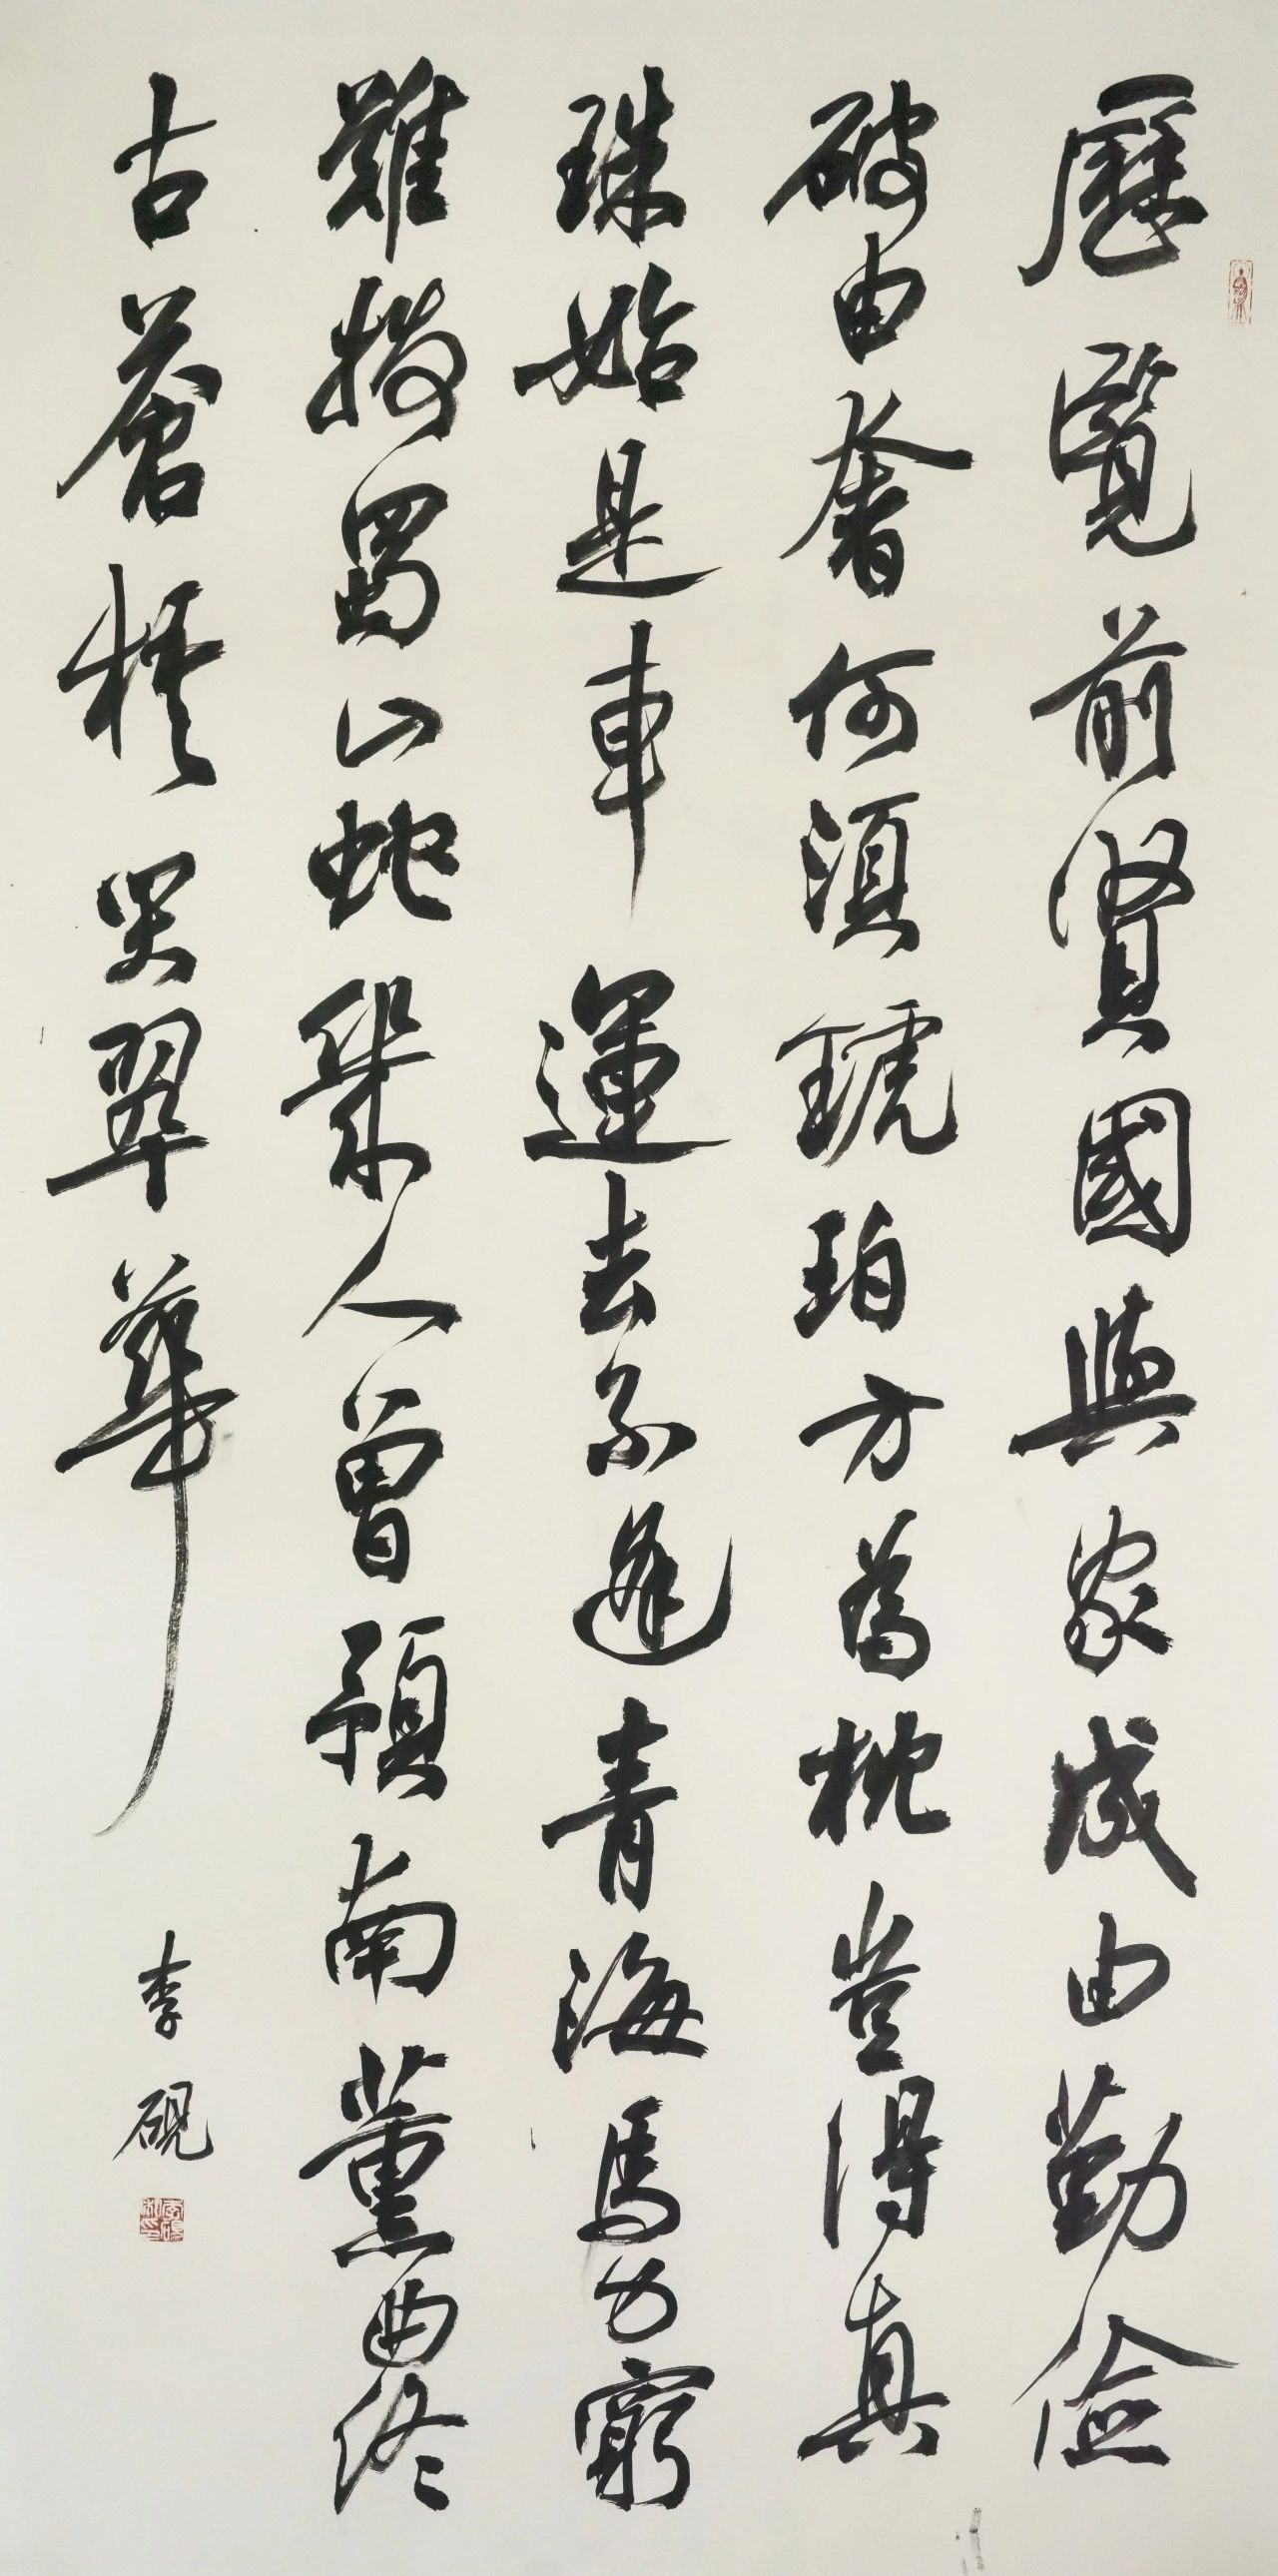 歷覽前賢國與家成由勤儉
破由奢何須琥珀方為枕豈得真
珠始是車運去不逢青海馬力窮
難拔蜀山蛇幾人曾預南薰曲終
古蒼梧哭翠華
李硯